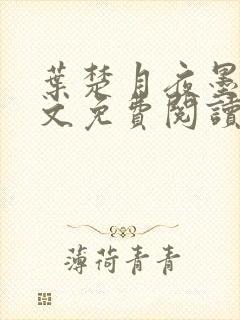 葉楚月夜墨
文免費閱讀
薄荷青青